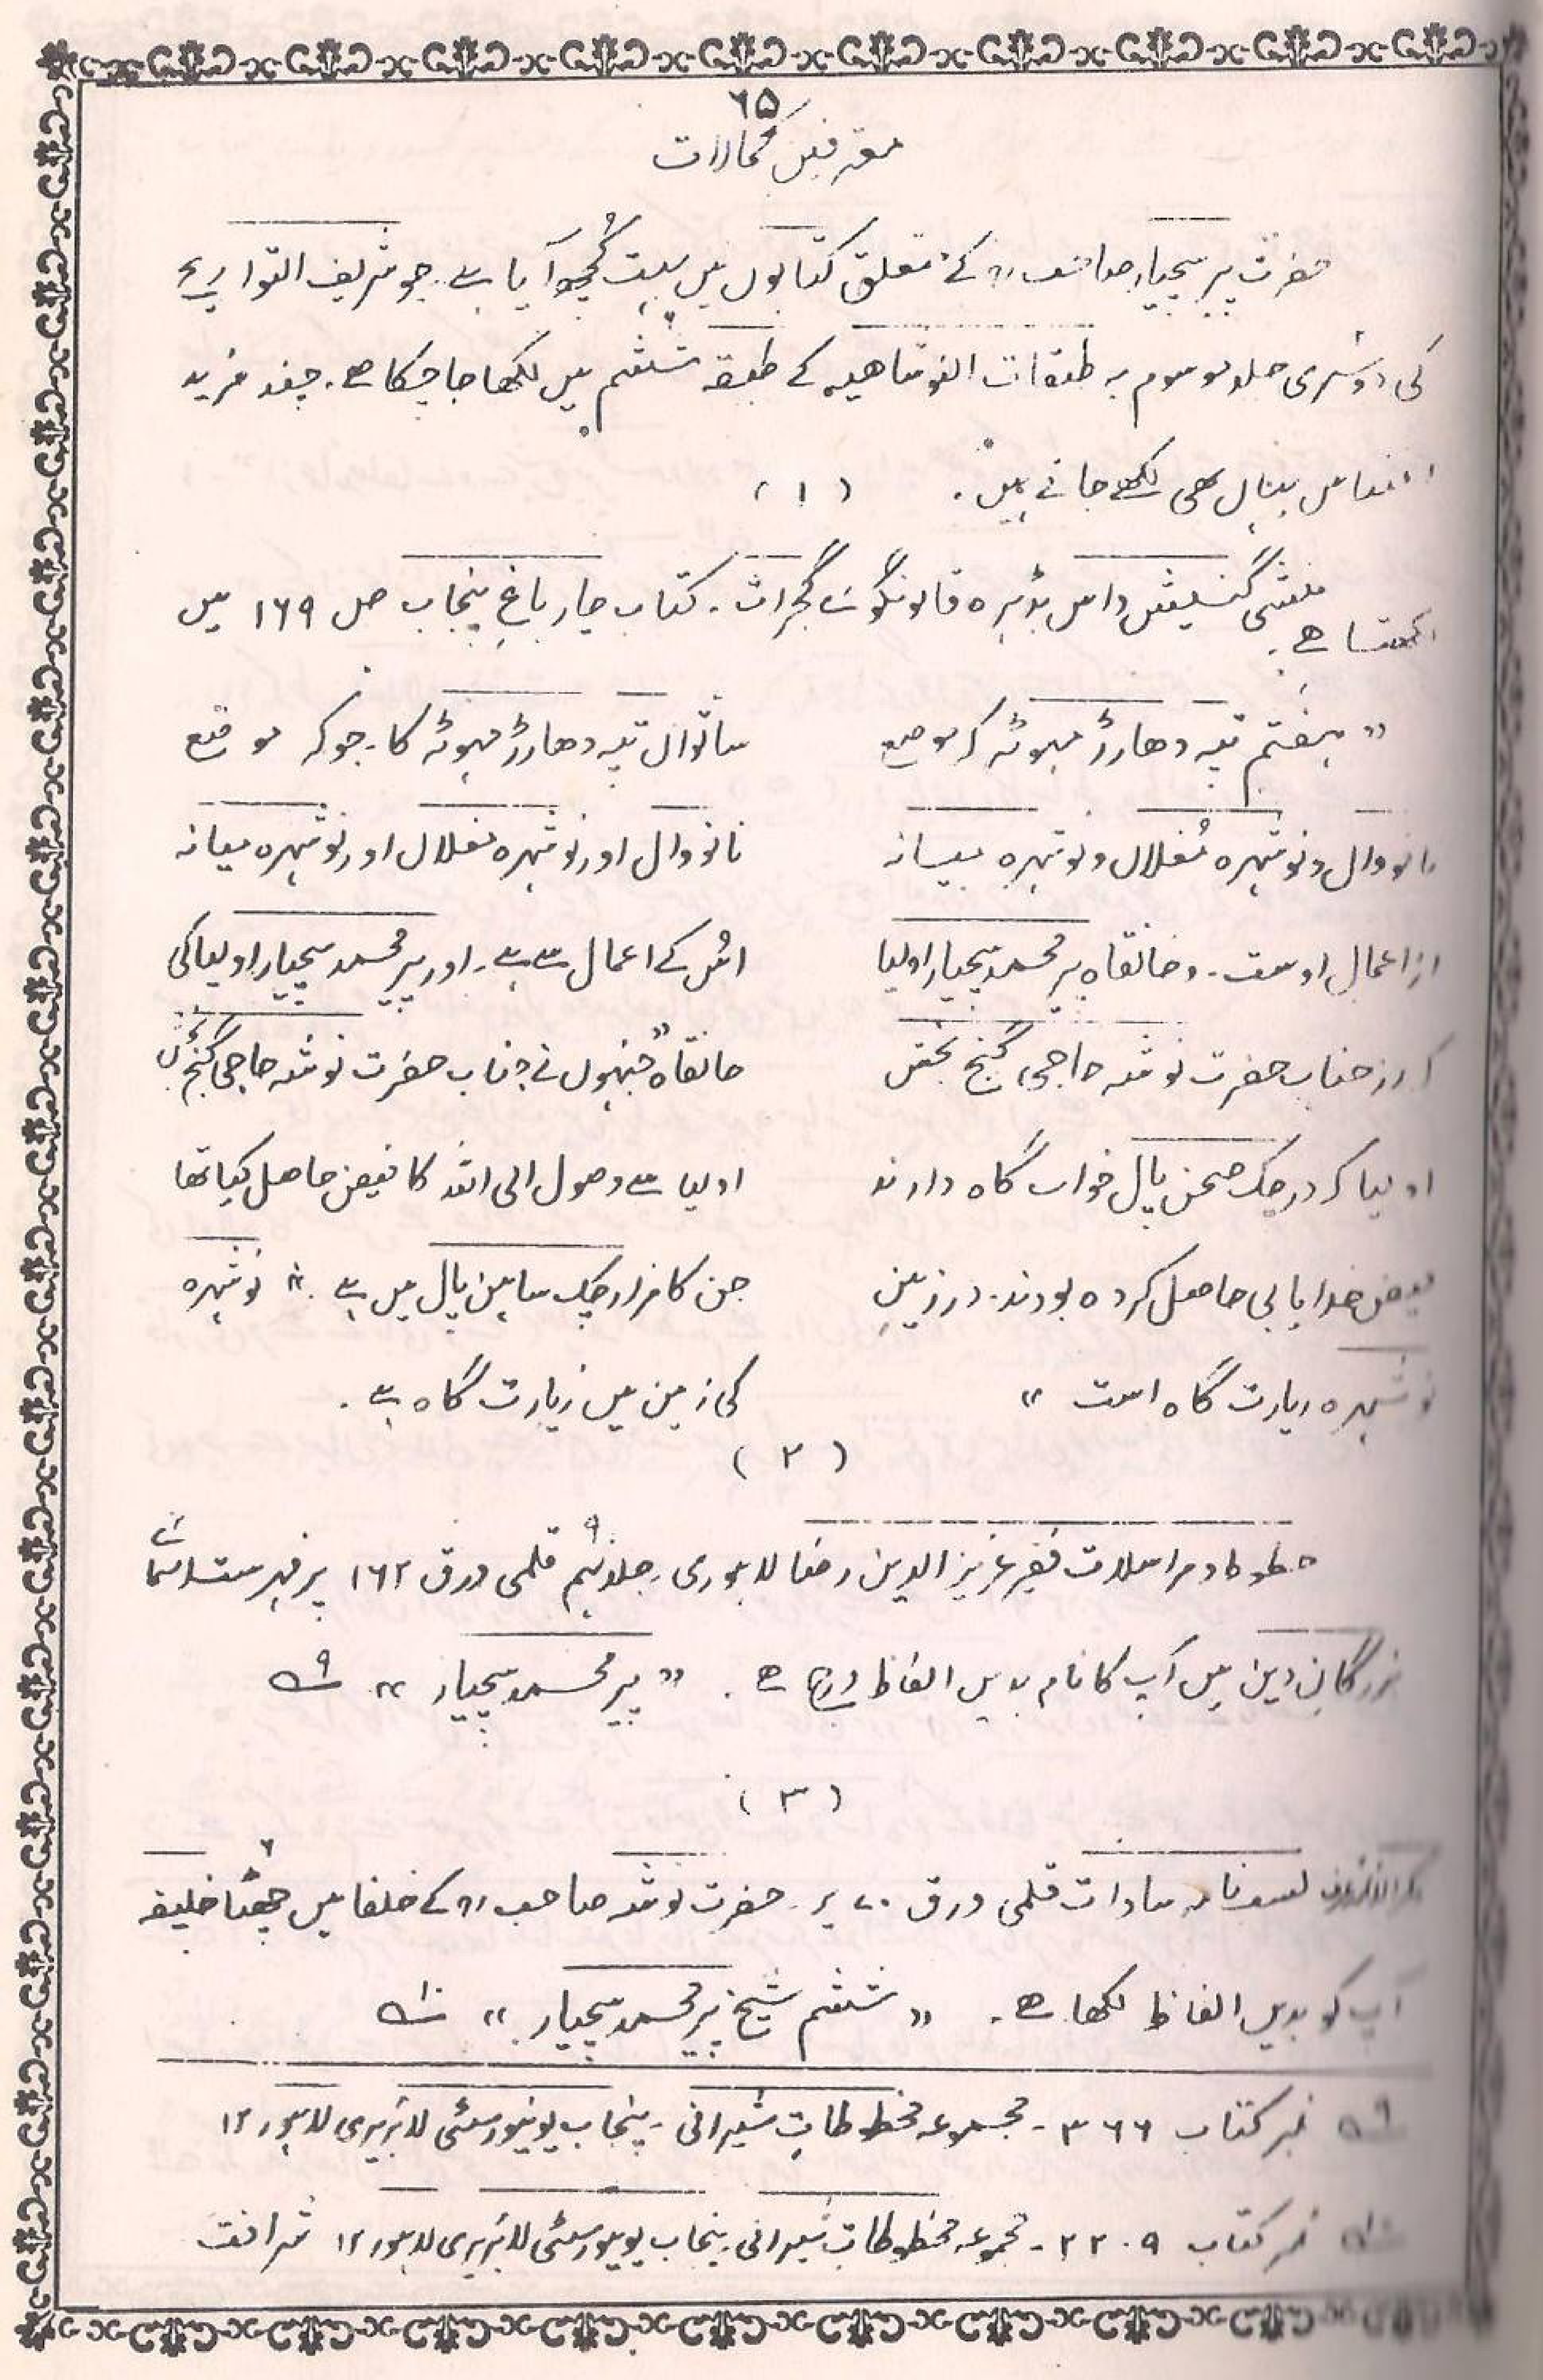 ۶۵
معترفین کمالات
حضرت پیر سچیار صاحب رح کے متعلق کتابوں میں بہت کچھ آیا ہے۔ جو شریف التواریخ
کی دوسری جلد موسوم بہ طبقات النوشاہیہ کے طبقہ ششم میں لکھا جا چکا ہے۔ چند مزید
اقتباس یہاں بھی لکھے جاتے ہیں۔ (۱)
منشی گنیش داس بڈہرہ قانونگوئے گجرات۔ کتاب چار باغِ پنجاب ص ۱۶۹ میں
لکھتا ہے۔
« ہفتم تپہ دھارڑ بہوٹہ کہ موضع
نانووال و نوشہرہ مُغلاں و نوشہرہ میانہ
از اعمال اوست۔ و خانقاہ پیر محمد سچیار اولیا
کہ از جناب حضرت نوشہ حاجی گنج بخش
اولیا کہ در چک صحن پال خواب گاہ دارند
فیض خدا یابی حاصل کردہ بودند۔ در زمینِ
نوشہرہ زیارت گاہ است »
ساتواں تپہ دھارڑ بہوٹہ کا۔ جو کہ موضع
نانووال اور نوشہرہ مغلاں اور نوشہرہ میانہ
اُس کے اعمال سے ہے۔ اور پیر محمد سچیار اولیا کی
خانقاہ « جنہوں نے جناب حضرت نوشہ حاجی گنج بخش
اولیا سے وصول الی اللہ کا فیض حاصل کیا تھا
جن کا مزار چک ساہن پال میں ہے۔ » نوشہرہ
کی زمین میں زیارت گاہ ہے۔
(۲)
خطوط و مراسلات فقیر عزیز الدین رضا لاہوری۔ جلد نہم قلمی ورق ۱۶۲ پر فہرست اسمائے
بزرگانِ دین میں آپ کا نام بدیں الفاظ درج ہے۔ « پیر محمد سچیار » ۹؎
(۳)
نسب نامہ سادات قلمی ورق ۷۰ پر۔ حضرت نوشہ صاحب رح کے خلفا میں چھٹا خلیفہ
آپ کو بدیں الفاظ لکھا ہے۔ « ششم شیخ پیر محمد سچیار » ۱۰؎
۹؎ نمبر کتاب ۳۶۶۔ مجموعہ مخطوطاتِ شیرانی۔ پنجاب یونیورسٹی لائبریری لاہور ۱۲
۱۰؎ نمبر کتاب ۲۲۰۹۔ مجموعہ مخطوطاتِ شیرانی۔ پنجاب یونیورسٹی لائبریری لاہور ۱۲ شرافت